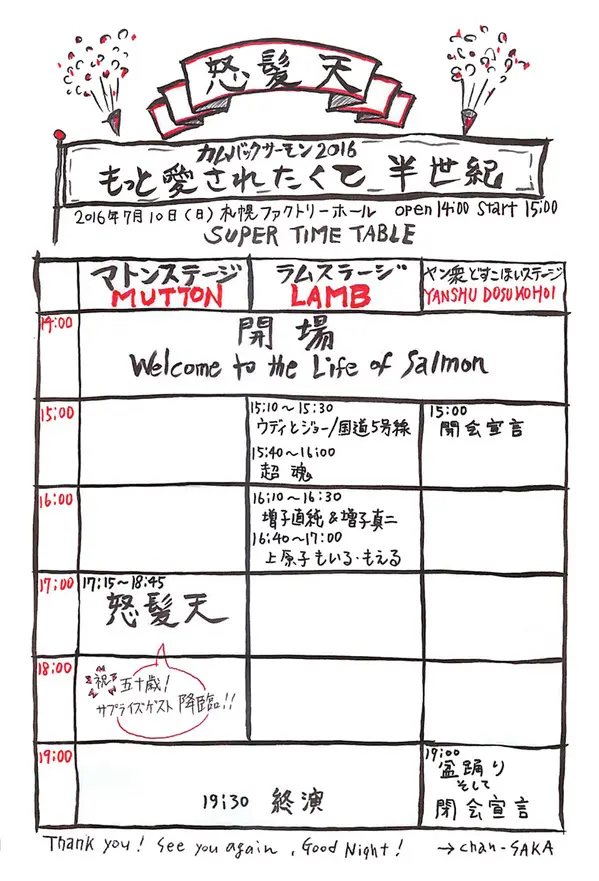 怒髪天
カムバックサーモン2016
もっと愛されたくて 半世紀
2016年7月10日(日)札幌ファクトリーホール open 14:00 Start 15:00
SUPER TIME TABLE
マトンステージ
MUTTON
ラムステージ
LAMB
ヤン衆どすこほいステージ
YANSHU DOSUKOHOI
14:00
開場
Welcome to the Life of Salmon
15:00
15:10～15:30
ウディとジョー/国道5号線
15:40～16:00
超魂
15:00
開会宣言
16:00
16:10～16:30
増子直純&増子真二
16:40～17:00
上原子もいる・もえる
17:00
17:15～18:45
怒髪天
18:00
祝 五十歳!
サプライズゲスト降臨!!
19:00
19:30 終演
19:00
盆踊り
そして
閉会宣言
Thank you! See you again, Good Night! →chan-SAKA